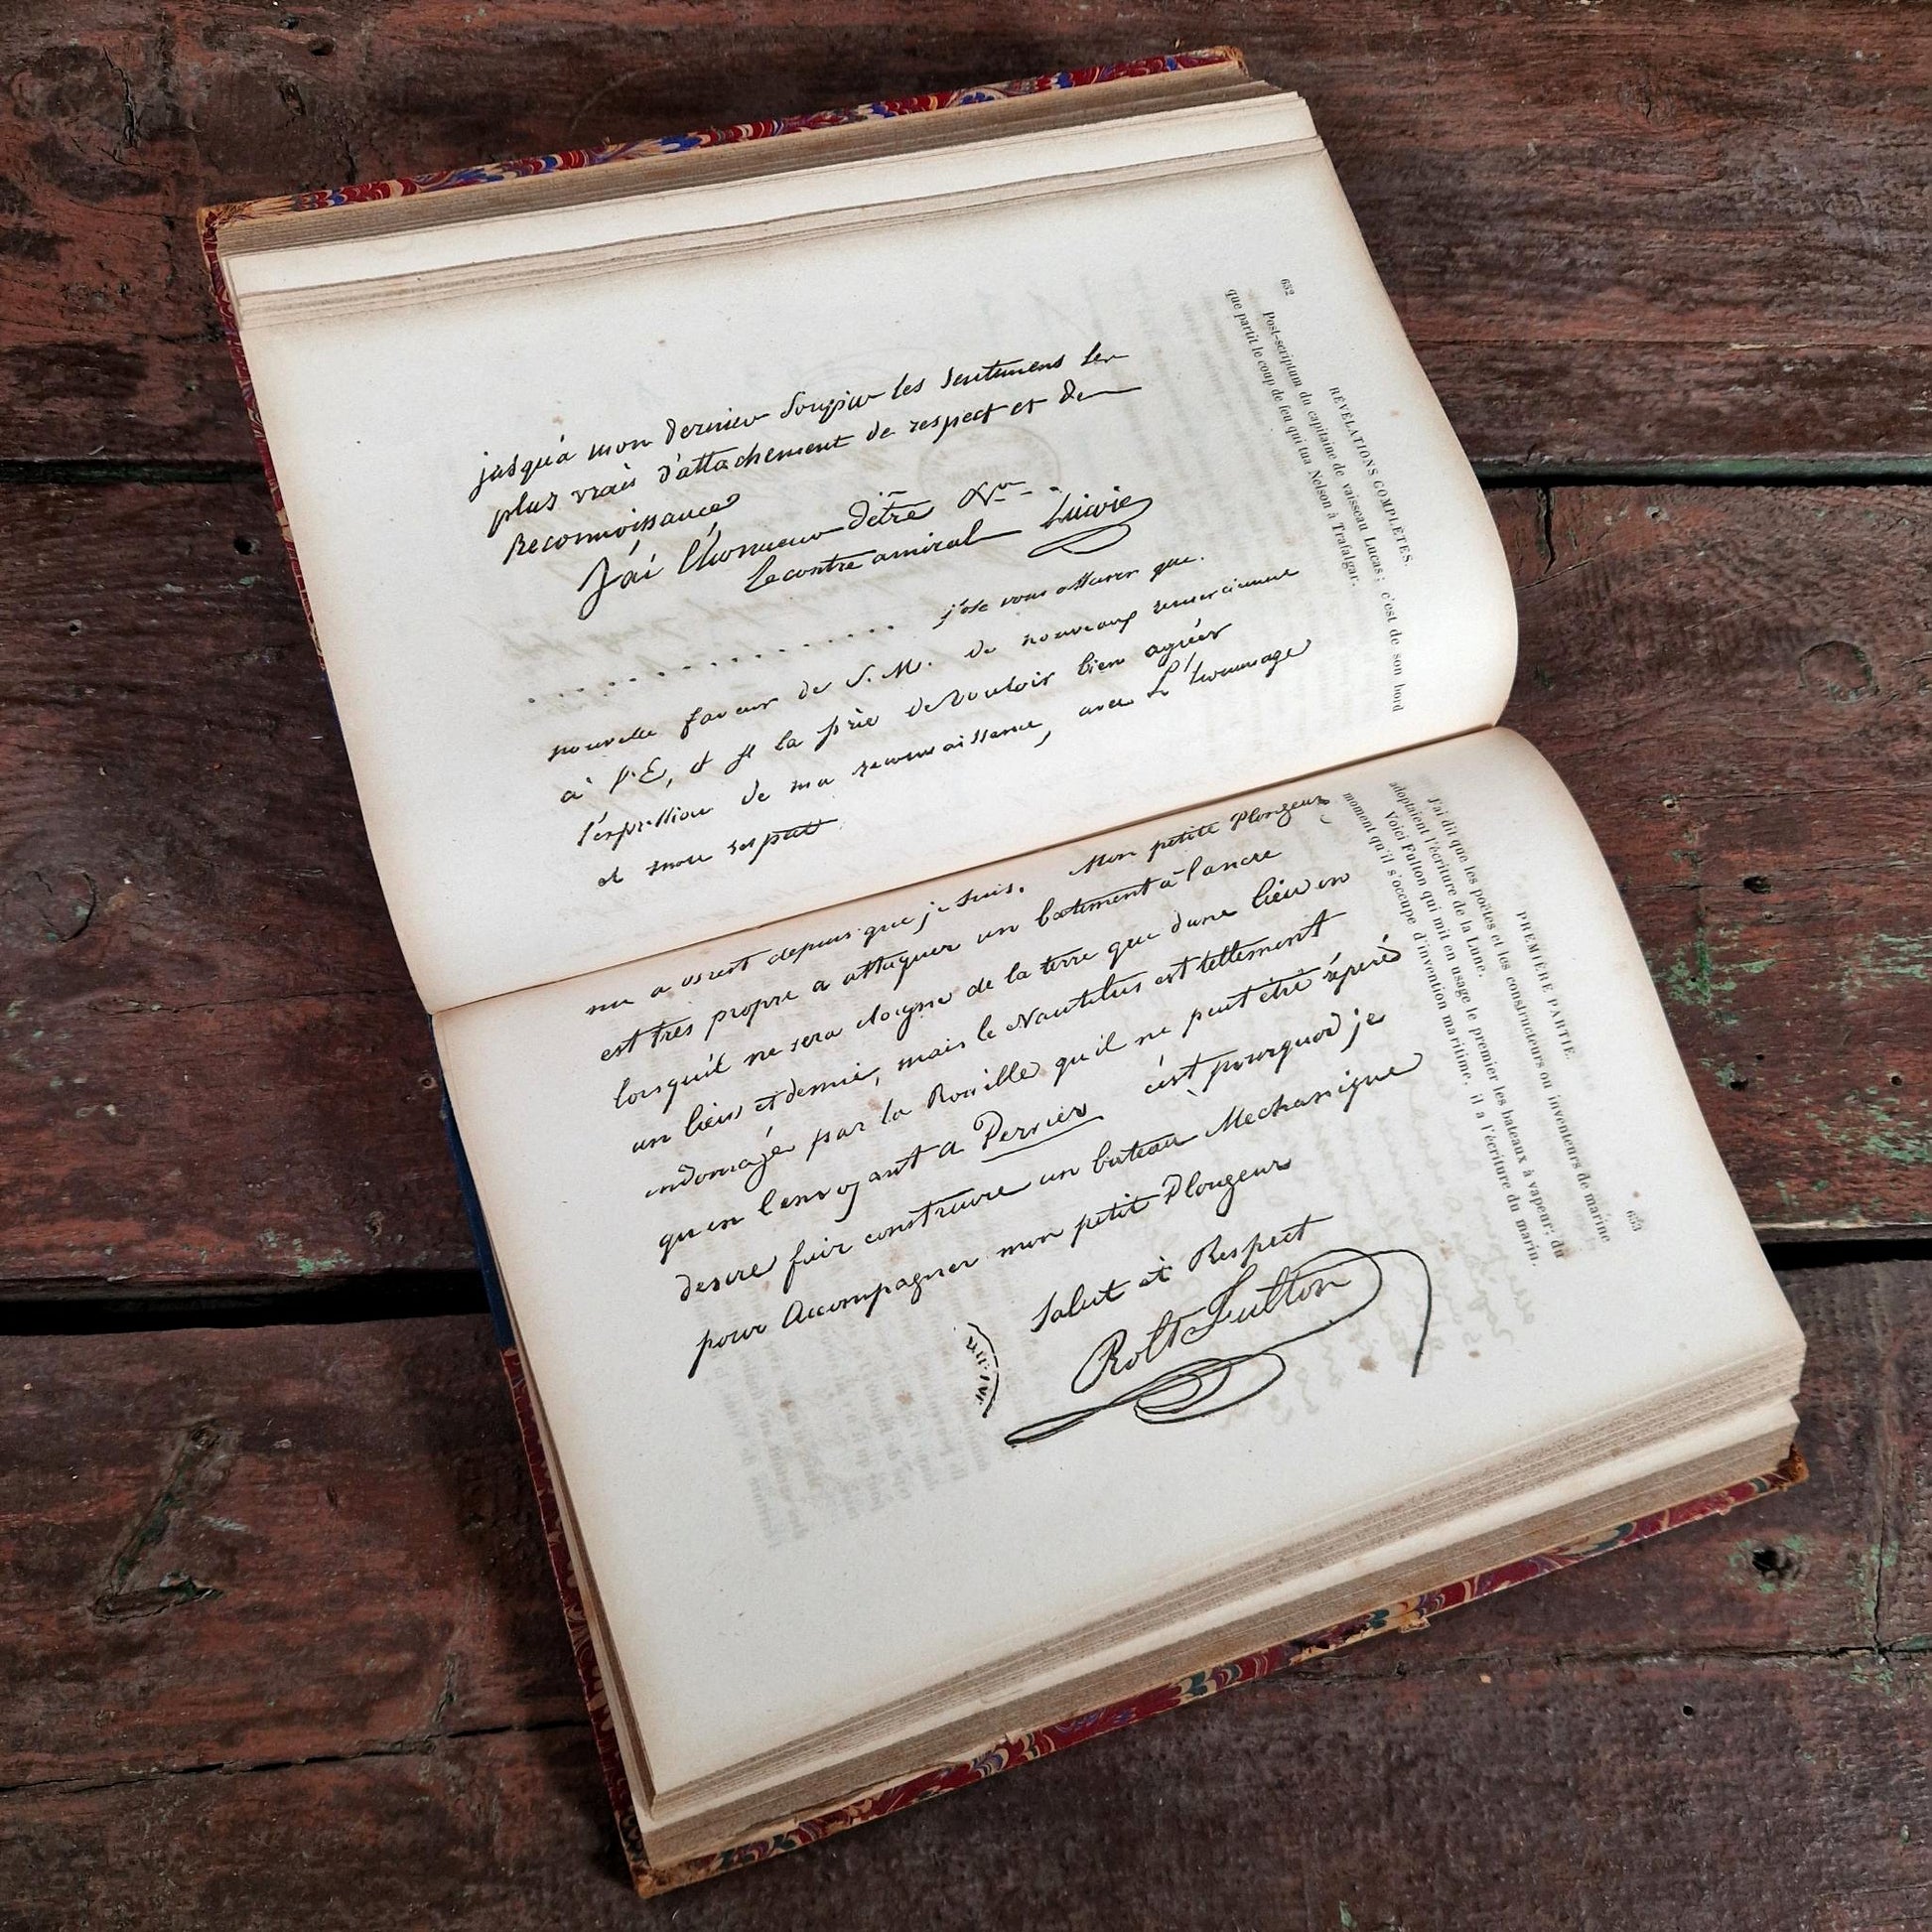 652
RÉVÉLATIONS COMPLÈTES.
Post-scriptum du capitaine de vaisseau Lucas; c'est de son bord
que partit le coup de feu qui tua Nelson à Trafalgar.
jusqu'à mon dernier Soupir les Sentimens les
plus vrais d'attachement de respect et de
Reconnoissance
J'ai l'honneur d'être
Le contre amiral
j'ose vous assurer que
nouvelle faveur de S. M. de nouveaux remerciemens
à V. E, et je la prie de Vouloir bien agréer
l'expression de ma reconnaissance, avec L'hommage
et mon respect
PREMIÈRE PARTIE.
653
J'ai dit que les poëtes et les constructeurs ou inventeurs de marine
adoptaient l'écriture de la Lune.
Voici Fulton qui mit en usage le premier les bateaux à vapeur; du
moment qu'il s'occupe d'invention maritime, il a l'écriture du marin.
depuis que je suis. Mon petite Plongeur
est tres propre a attaquer un batement a l'ancre
lorsquil ne sera eloigne de la terre que dune lieu ou
un lieu et demie, mais le Nautilus est tellement
indomagée par la Rouille qu'il ne peut etre réperé
qu'en l'envoyant a Perrier c'est pourquoi je
desire fair construire un bateau Mechanique
pour Accompagner mon petit Plongeur
Salut et Respect
Robt Fulton